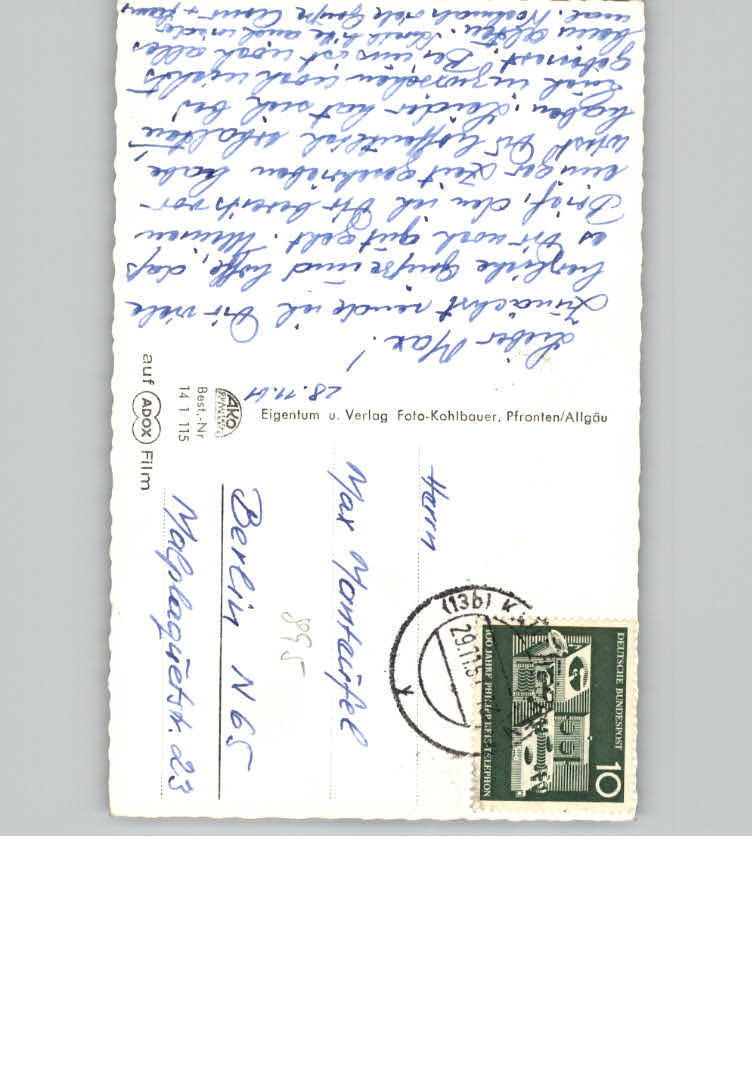 28.11.61
Lieber Max!
Zunächst sende ich Dir viele
herzliche Grüße und hoffe, daß
es Dir noch gut geht. Meinen
Brief, den ich Dir bereits vor
einiger Zeit geschrieben habe,
wirst Du hoffentlich erhalten
haben. Leider hat sich bei
Euch inzwischen noch nichts
gebessert. Bei uns ist noch alles
beim alten. bitte auch
mal. Nochmals viele Grüße
Eigentum u. Verlag Foto-Kohlbauer, Pfronten/Allgäu
AKO
Best.-Nr
14 1 115
auf ADOX Film
Herrn
Max
Berlin N 65
Malplaquetstr. 23
895
(13b)
29.11.
DEUTSCHE BUNDESPOST
10
100 JAHRE PHILIPP REIS-TELEPHON